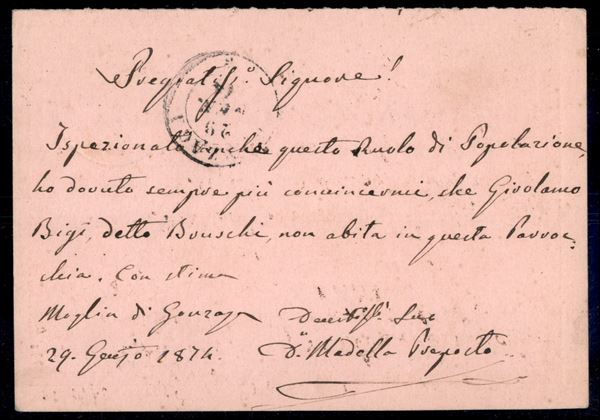 Pregiat.ss.o Signore!
Ispezionato anche questo Ruolo di Popolazione,
ho dovuto sempre più convincermi, che Girolamo
Bigi, detto Bouschi, non abita in questa Parroc=
chia. Con stima
Moglia di Gonzaga Devotiss. Suo
29. Genjo 1874. D.n Madella Preposto